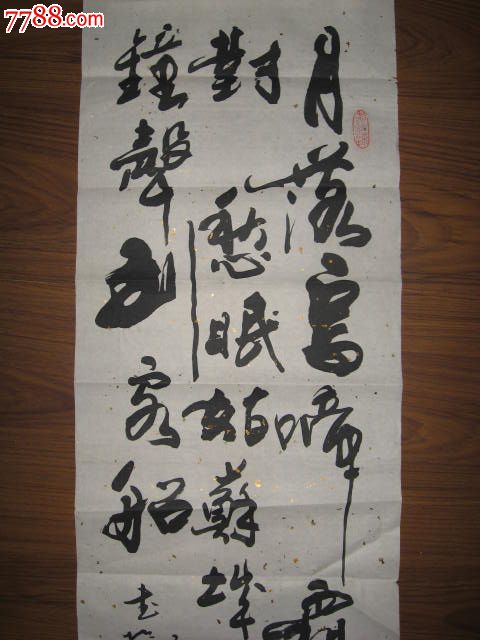 7788.com
月落烏啼霜
對愁眠姑蘇城
鐘聲到客船